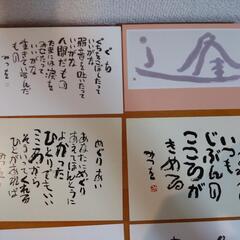 ぐち
ぐちをこぼしたって
いいがな
弱音を吐いたって
いいがな
人間だもの
たまには涙を
みせたって
いいがな
生きているんだ
もの
みつを
めぐりあい
あなたにめぐり
あえてほんとうに
よかった
ひとりでもいい
こころから
そういってくれる
ひとがあれば
みつを
いつも
じぶんの
こころが
きめる
みつを